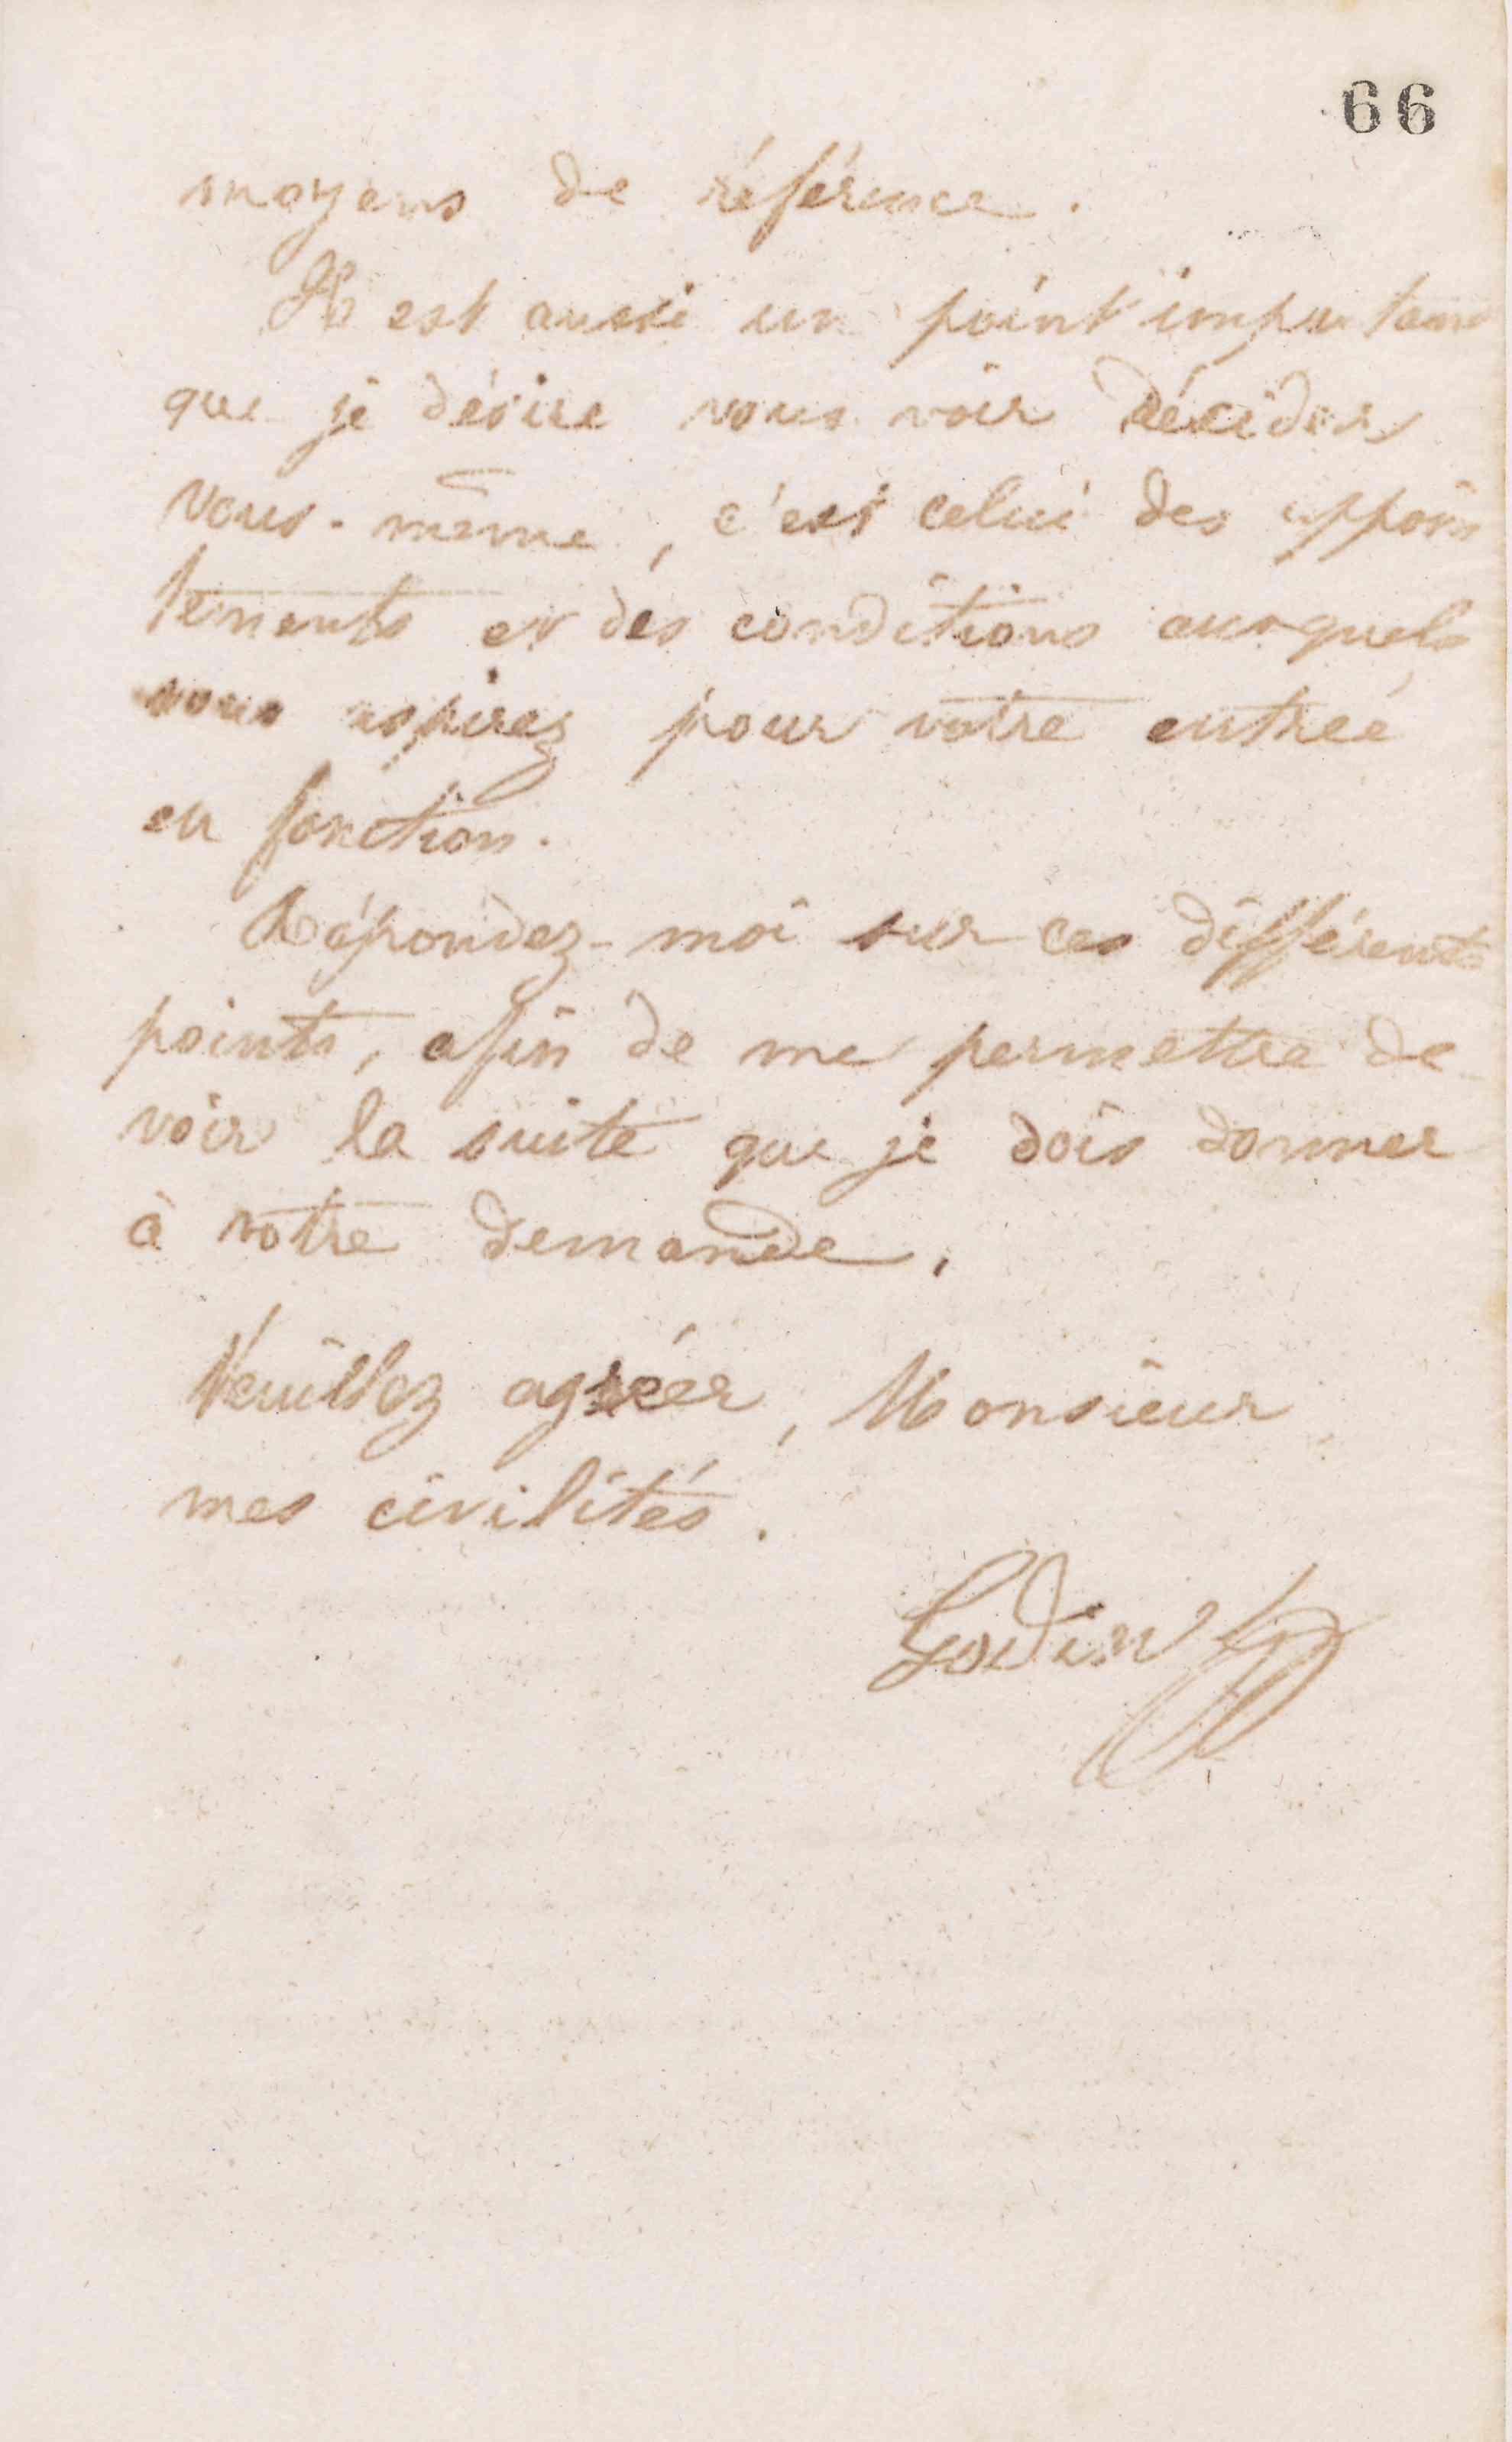 66
moyens de référence.
Il est aussi un point important
que je désire vous voir décider
vous-même, c'est celui des appoin
tements et des conditions auxquels
vous aspirez pour votre entrée
en fonction.
Répondez-moi sur ces différents
points, afin de me permettre de
voir la suite que je dois donner
à votre demande.
Veuillez agréer, Monsieur
mes civilités.
Godin